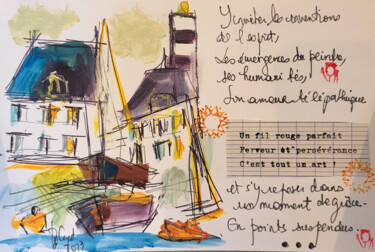 Y inviter les conventions
de l'esprit,
Les émergences du peintre,
ses humanités,
Son amour télépathique
Un fil rouge parfait
Ferveur et persévérance
C'est tout un art !
et s'y reposer dans
un moment de grâce.
En points suspendus...